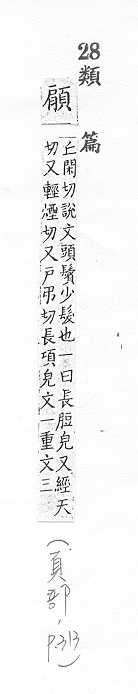 28類篇
顅
丘閑切說文頭鬢少髮也一曰長脰皃又經天
切又輕煙切又戶弔切長項皃文一重文三
(頁部,P.313)